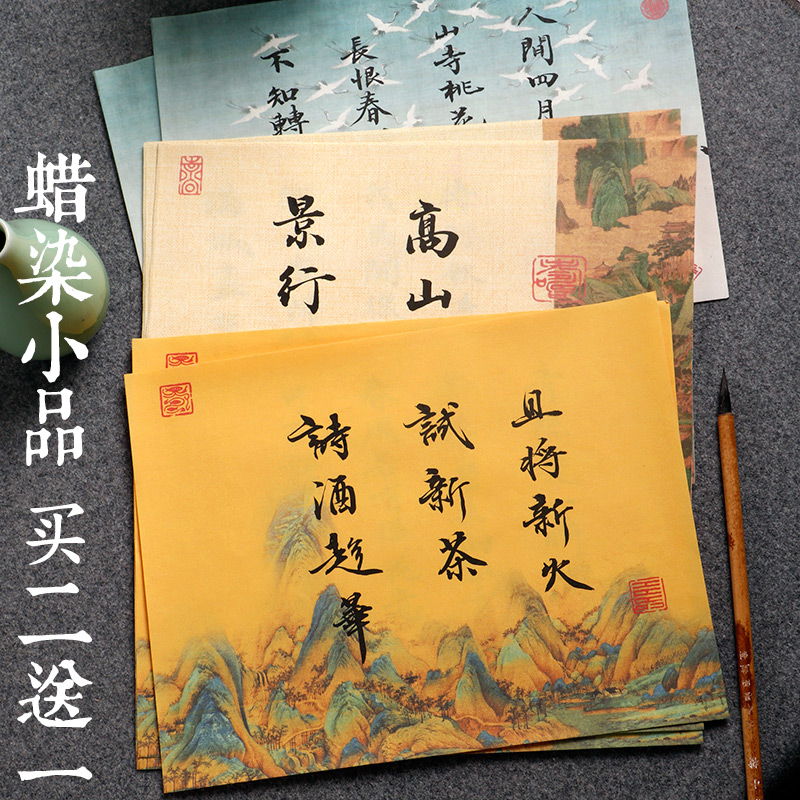 蜡染小品 买二送一
人間四月
山寺桃花
長恨春
不知轉
高山
景行
且将新火
試新茶
詩酒趁華